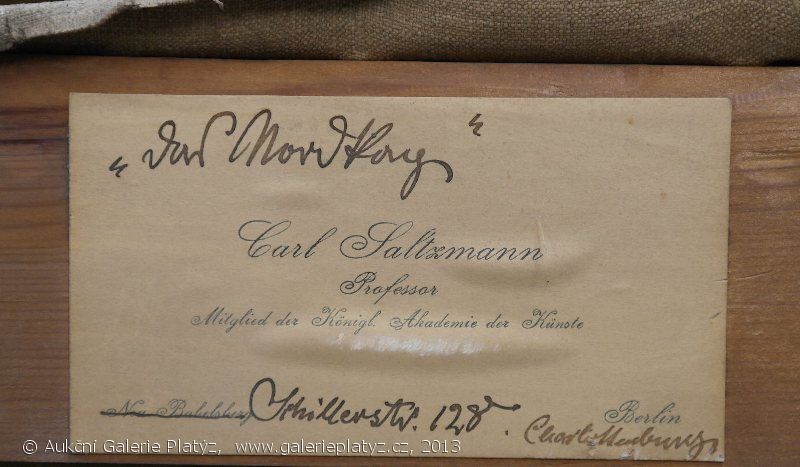 „Das Nordkap“
Carl Saltzmann
Professor
Mitglied der Königl. Akademie der Künste
Neu Babelsberg Schillerstr. 128. Berlin
Charlottenburg.
© Aukční Galerie Platýz, www.galerieplatyz.cz, 2013